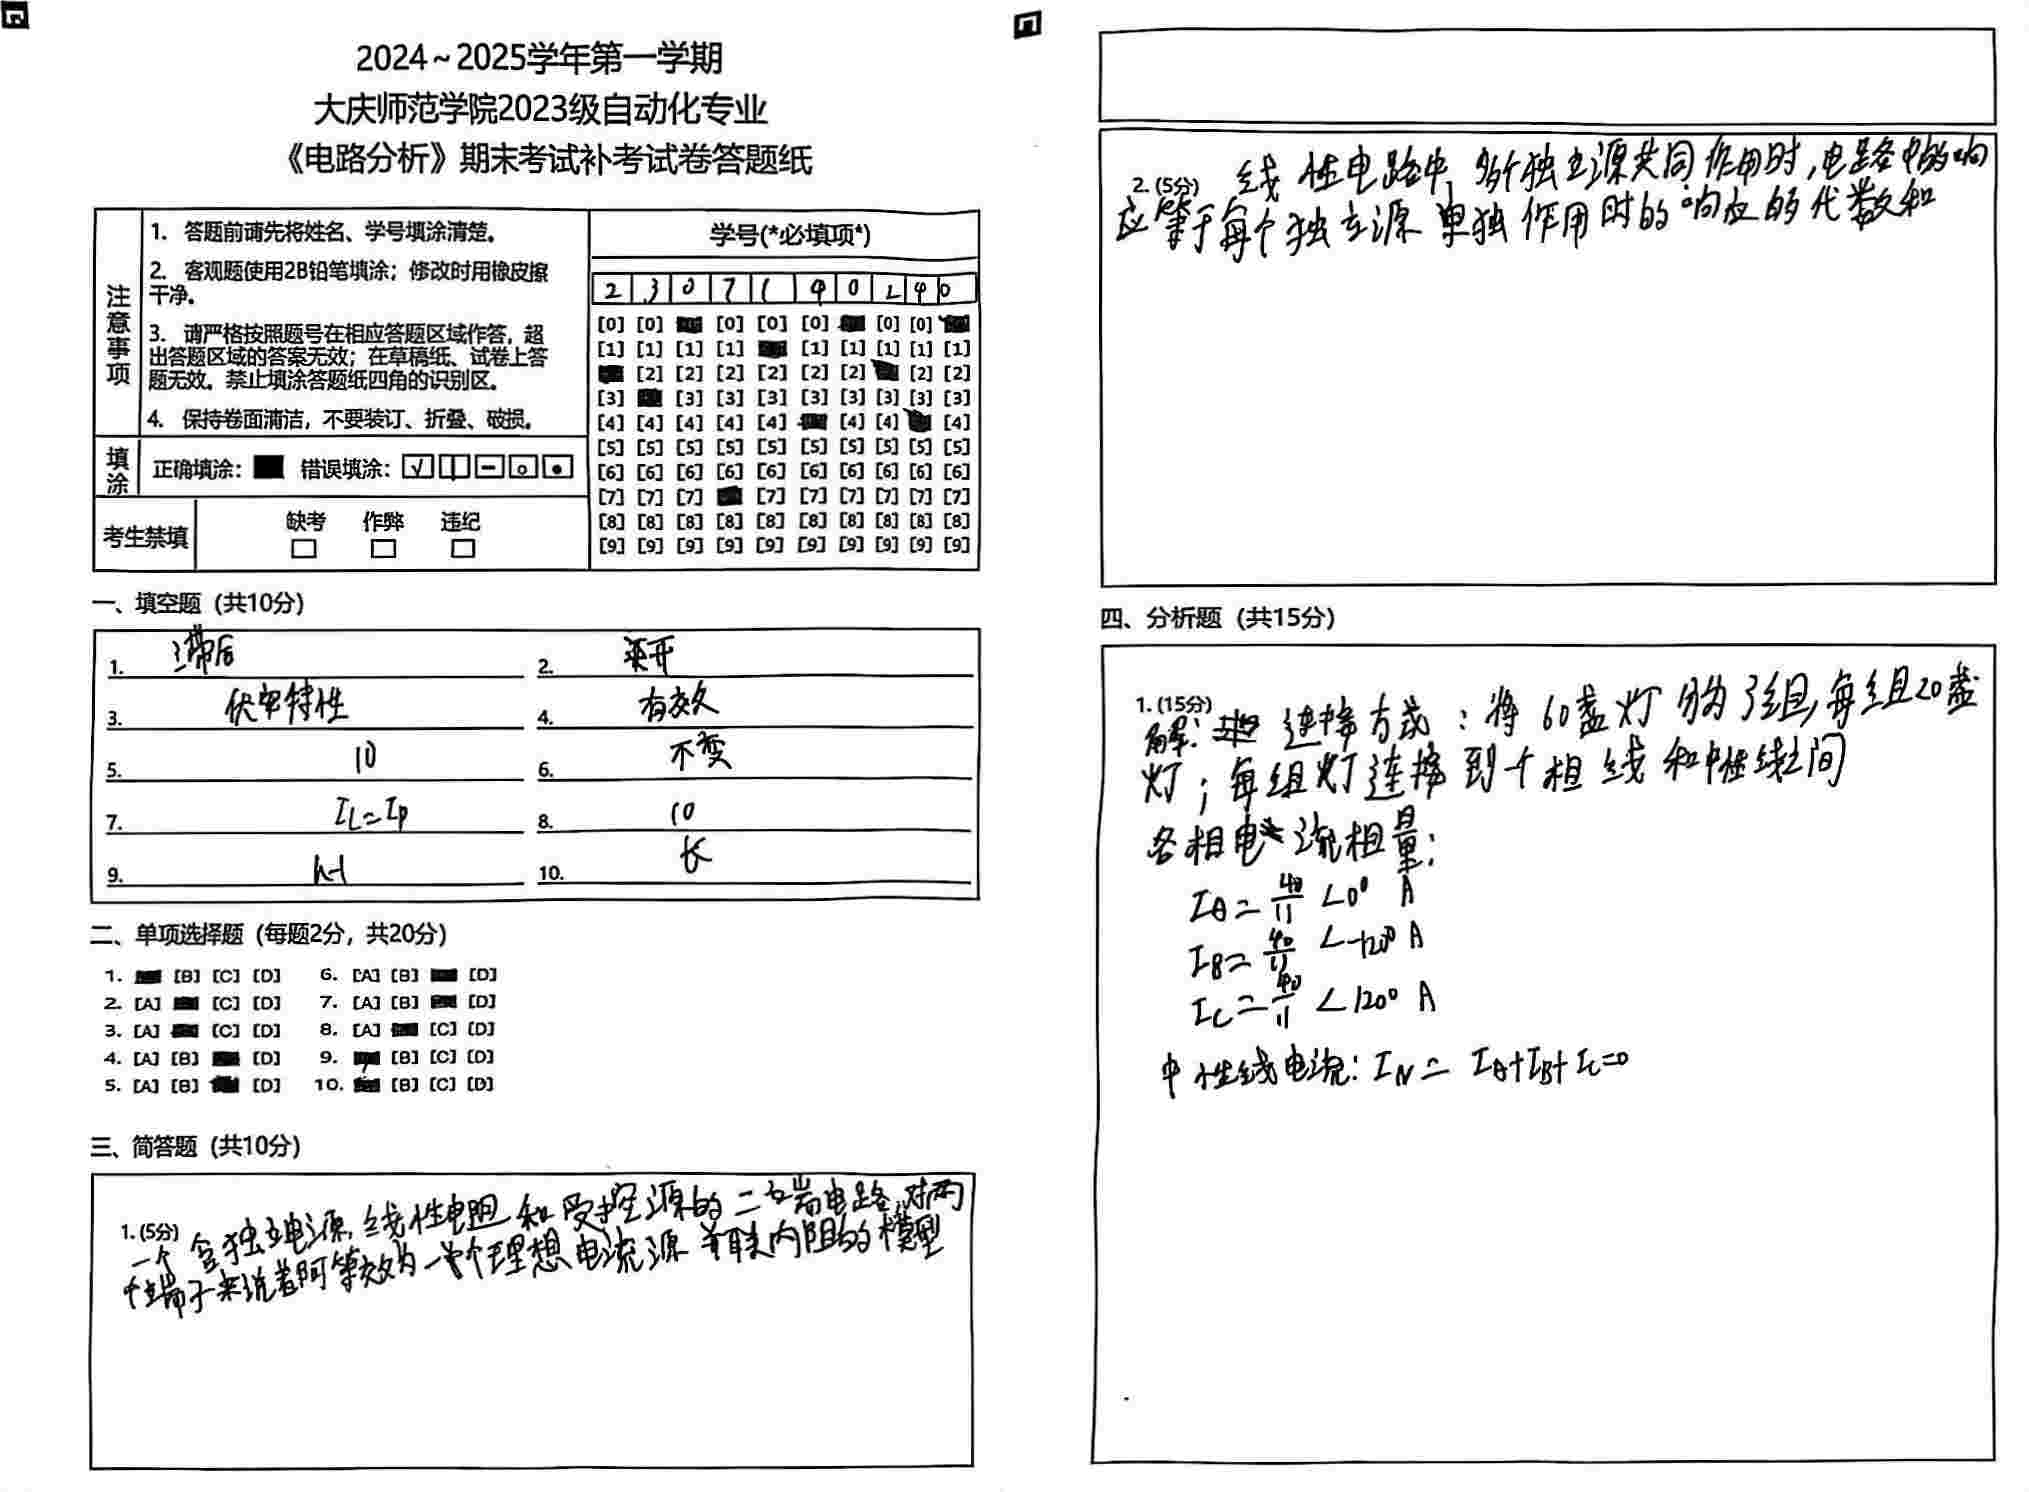 2024~2025学年第一学期
大庆师范学院2023级自动化专业
《电路分析》期末考试补考试卷答题纸
注意事项
1. 答题前请先将姓名、学号填涂清楚。
2. 客观题使用2B铅笔填涂；修改时用橡皮擦
干净。
3. 请严格按照题号在相应答题区域作答，超
出答题区域的答案无效；在草稿纸、试卷上答
题无效。禁止填涂答题纸四角的识别区。
4. 保持卷面清洁，不要装订、折叠、破损。
填涂
正确填涂： 错误填涂：
考生禁填
缺考 作弊 违纪
学号(*必填项*)
2 3 0 7 1 4 0 2 4 0
[0] [0] [0] [0] [0] [0] [0]
[1] [1] [1] [1] [1] [1] [1] [1] [1]
[2] [2] [2] [2] [2] [2] [2] [2]
[3] [3] [3] [3] [3] [3] [3] [3] [3]
[4] [4] [4] [4] [4] [4] [4] [4]
[5] [5] [5] [5] [5] [5] [5] [5] [5] [5]
[6] [6] [6] [6] [6] [6] [6] [6] [6] [6]
[7] [7] [7] [7] [7] [7] [7] [7] [7]
[8] [8] [8] [8] [8] [8] [8] [8] [8] [8]
[9] [9] [9] [9] [9] [9] [9] [9] [9] [9]
一、填空题（共10分）
1. 滞后 2. 断开
3. 伏安特性 4. 有效
5. 10 6. 不变
7. IL=IP 8. 10
9. n-1 10. 长
二、单项选择题（每题2分，共20分）
1. [B] [C] [D] 6. [A] [B] [D]
2. [A] [C] [D] 7. [A] [B] [D]
3. [A] [C] [D] 8. [A] [C] [D]
4. [A] [B] [D] 9. [B] [C] [D]
5. [A] [B] [D] 10. [B] [C] [D]
三、简答题（共10分）
1. (5分) 一个含独立电源,线性电阻和受控源的二端电路,对两
个端子来说着可等效为一个理想电流源并联内阻的模型
2. (5分) 线性电路中,多个独立源共同作用时,电路中的响
应等于每个独立源单独作用时的响应的代数和
四、分析题（共15分）
1. (15分)
解: 连接方式：将60盏灯分为3组,每组20盏
灯；每组灯连接到个相线和中性线之间
各相电流相量:
IA=40/11 ∠0° A
IB=40/11 ∠-120° A
IC=40/11 ∠120° A
中性线电流: IN= IA+IB+IC=0